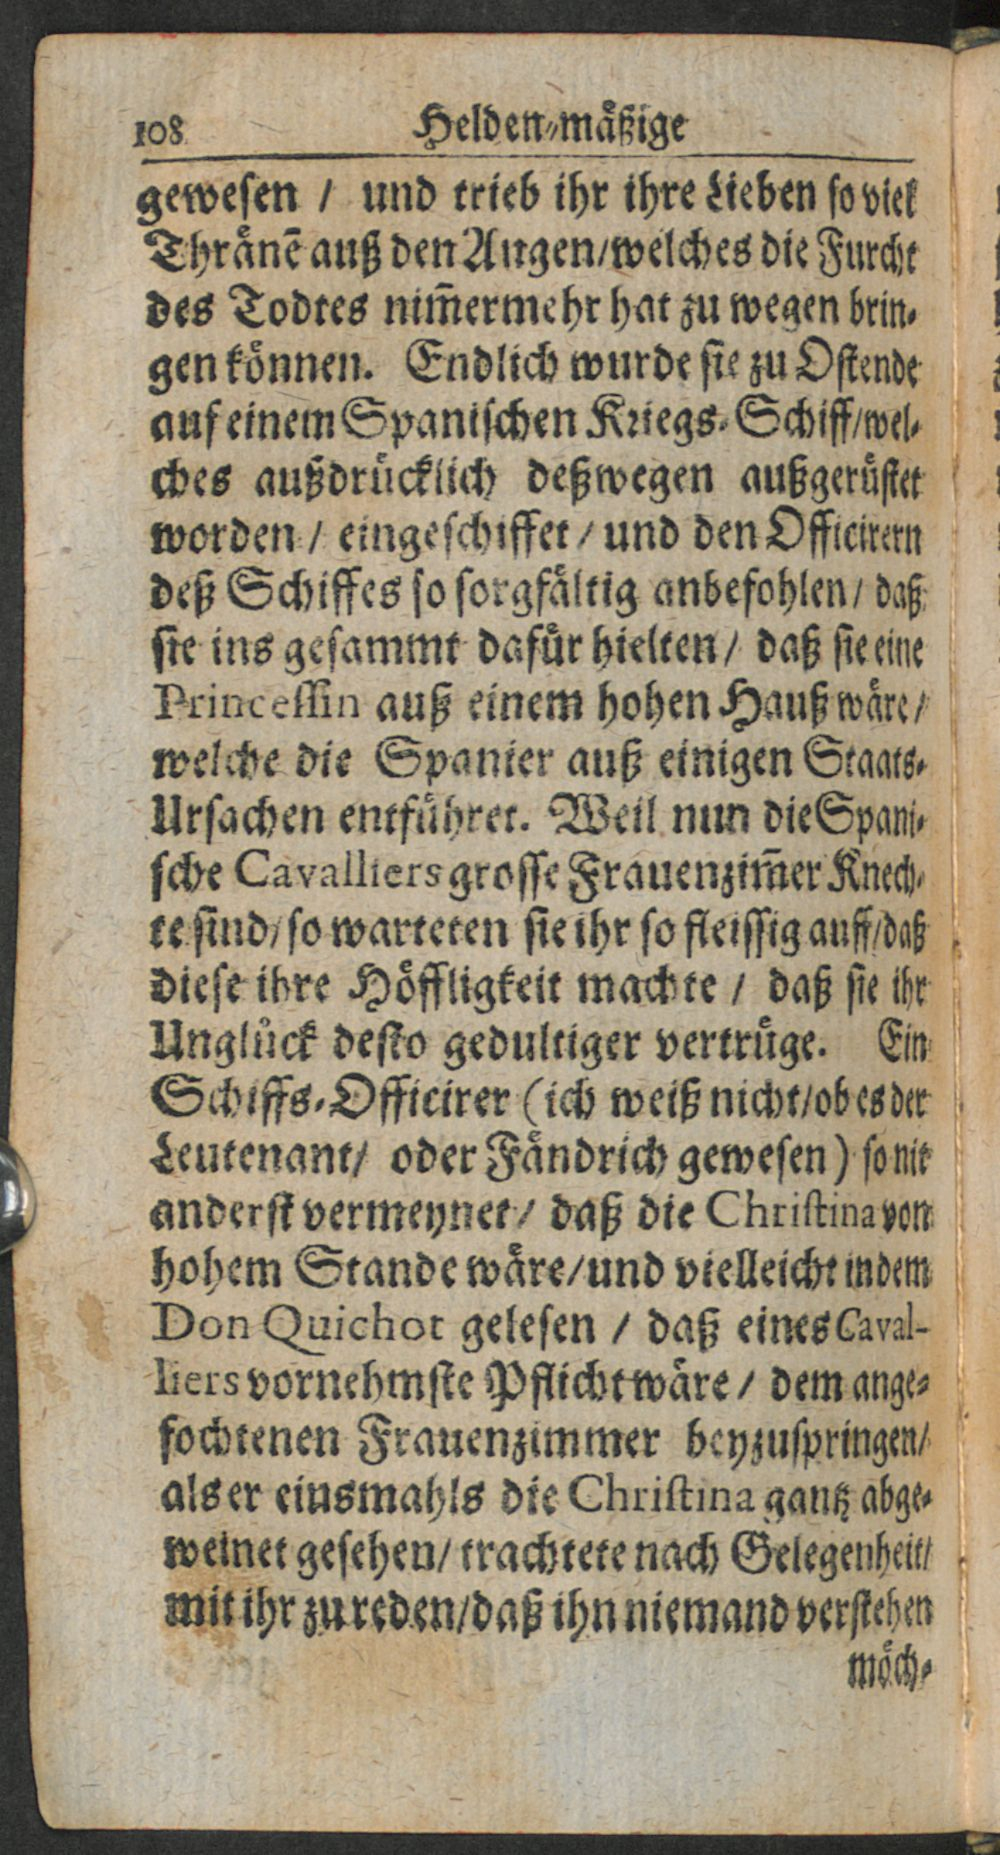 108 Helden-mäßige
gewesen / und trieb ihr ihre Lieben so viel
Thränē auß den Augen/welches die Furcht
des Todtes nim̄ermehr hat zu wegen brin-
gen können. Endlich wurde sie zu Ostende
auf einem Spanischen Kriegs-Schiff/wel-
ches außdrücklich deßwegen außgerüstet
worden / eingeschiffet / und den Officirern
deß Schiffes so sorgfältig anbefohlen / daß
sie ins gesammt dafür hielten / daß sie eine
Princessin auß einem hohen Hauß wäre /
welche die Spanier auß einigen Staats-
Ursachen entführet. Weil nun die Spani-
sche Cavalliers grosse Frauenzim̄er Knech-
te sind/ so warteten sie ihr so fleissig auff/daß
diese ihre Höffligkeit machte / daß sie ihr
Unglück desto gedultiger vertrüge. Ein
Schiffs-Officirer (ich weiß nicht/ob es der
Leutenant/ oder Fändrich gewesen) so nit
anderst vermeynet / daß die Christina von
hohem Stande wäre/und vielleicht in dem
Don Quichot gelesen / daß eines Caval-
liers vornehmste Pflicht wäre / dem ange-
fochtenen Frauenzimmer beyzuspringen/
als er einsmahls die Christina gantz abge-
weinet gesehen/ trachtete nach Gelegenheit/
mit ihr zu reden/daß ihn niemand verstehen
möch-